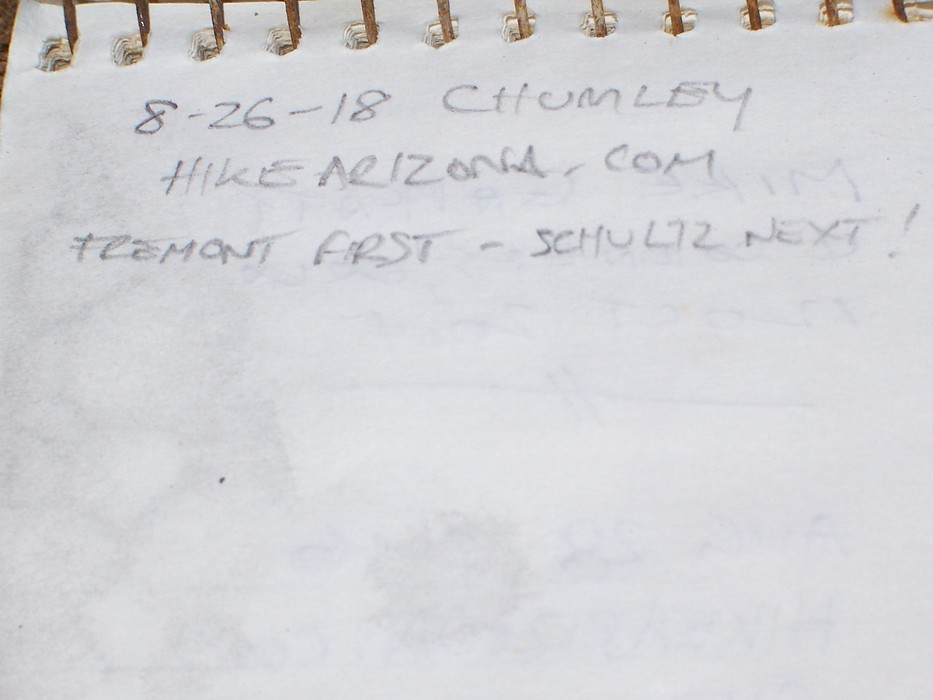 8-26-18 CHUMLEY
HIKEARIZONA.COM
FREMONT FIRST - SCHULTZ NEXT!